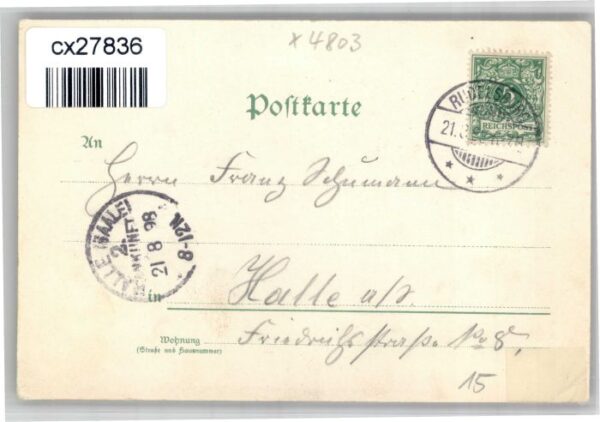 cx27836
x 4803
Postkarte
RUDELSBURG
21.8.
REICHSPOST
An
Herrn Franz Schumann
HALLE (SAALE)
2.
ANKUNFT
21 8 98
8-12N.
in
Halle a/S.
Wohnung
(Straße und Hausnummer)
Friedrichstraße No 8,
15